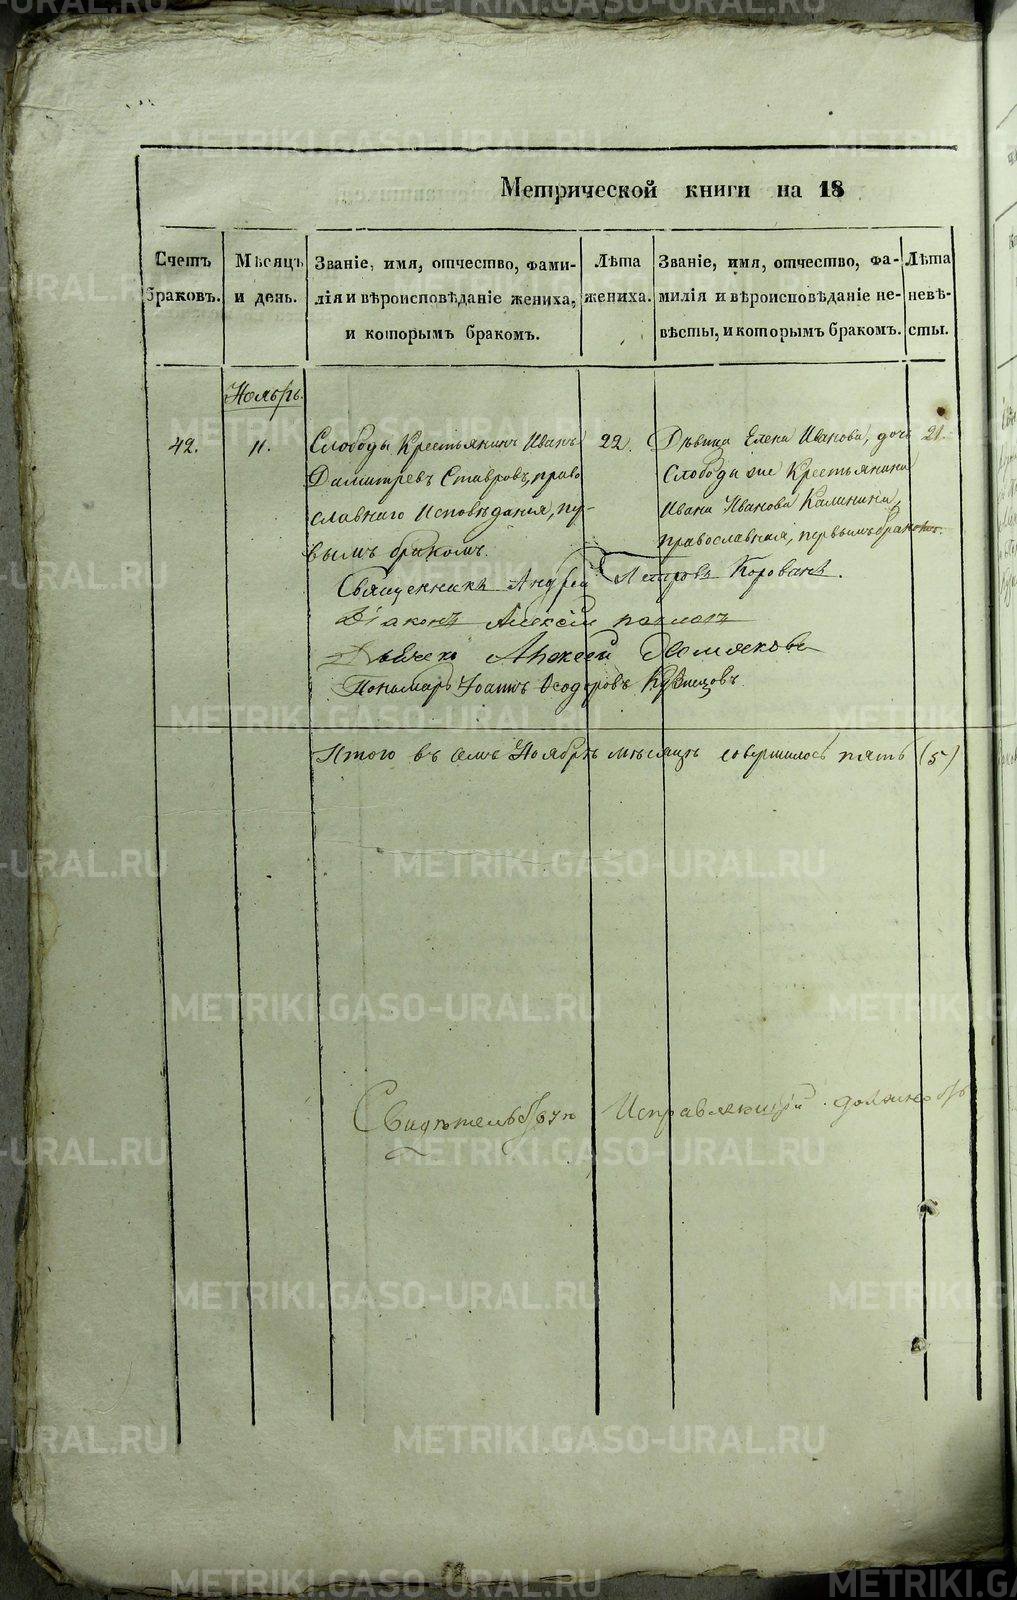 Метрической книги на 18
Счетъ браковъ.
Мѣсяцъ и день.
Званіе, имя, отчество, фами-
лія и вѣроисповѣданіе жениха,
и которымъ бракомъ.
Лѣта
жениха.
Званіе, имя, отчество, фа-
милія и вѣроисповѣданіе не-
вѣсты, и которымъ бракомъ.
Лѣта
невѣ-
сты.
Ноябрь.
42.
11.
Слободы Крестьянинъ Иванъ
Димитревъ Ставровъ, право
славнаго Исповѣданія, пер-
вымъ бракомъ.
22.
Дѣвица Елена Иванова, дочь
Слободы же Крестьянина
Ивана Иванова Калинина,
православная, первымъ бракомъ.
21.
Священникъ Андрей Петровъ
Діаконъ Алексѣй
Дьячекъ Алексѣй
Пономарь Іоаннъ Ѳеодоровъ Кузнецовъ
Итого въ семъ Ноябрѣ мѣсяцѣ совершилось пять (5)
Свидѣтельствую Исправляющій должность
METRIKI.GASO-URAL.RU